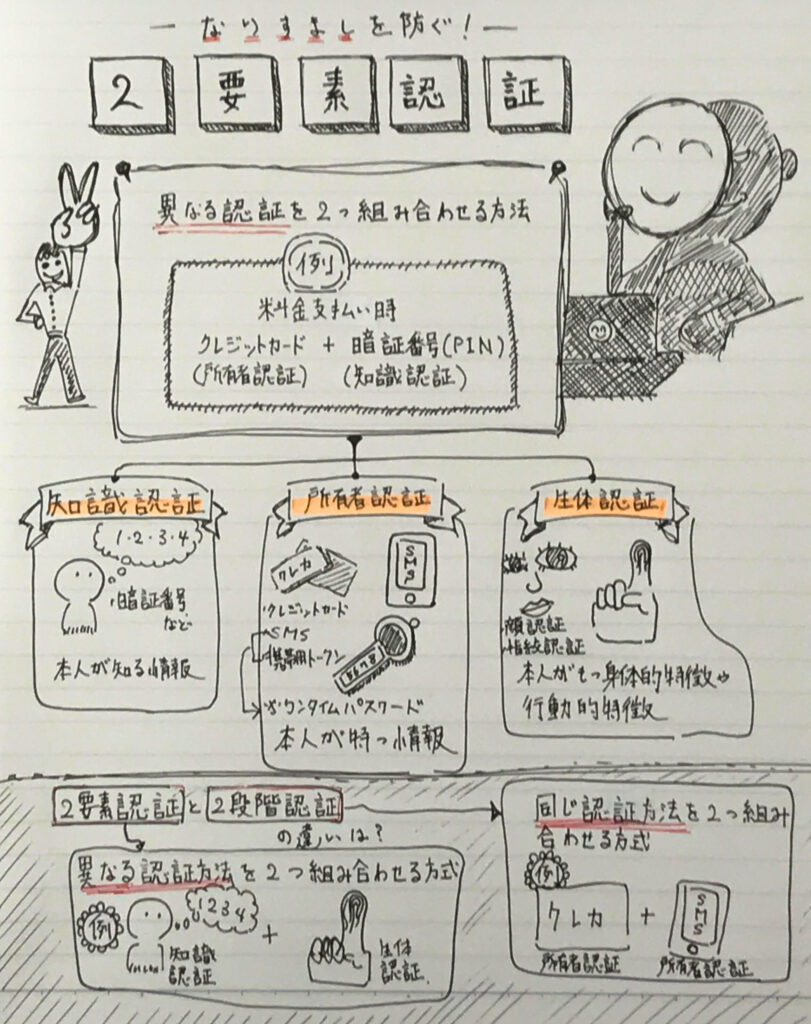 なりすましを防ぐ!
2要素認証
異なる認証を2つ組み合わせる方法
例
料金支払い時
クレジットカード + 暗証番号(PIN)
(所有者認証) (知識認証)
知識認証
1・2・3・4
・暗証番号
など
本人が知る情報
所有者認証
クレカ
SMS
・クレジットカード
・SMS
・携帯用トークン
ワンタイムパスワード
本人が持つ情報
生体認証
・顔認証
・指紋認証
本人がもつ身体的特徴や
行動的特徴
2要素認証と2段階認証
の違いは?
異なる認証方法を2つ組み合わせる方式
例
1234
知識
認証
+
生体
認証
同じ認証方法を2つ組み
合わせる方式
例
クレカ + SMS
所有者認証 所有者認証